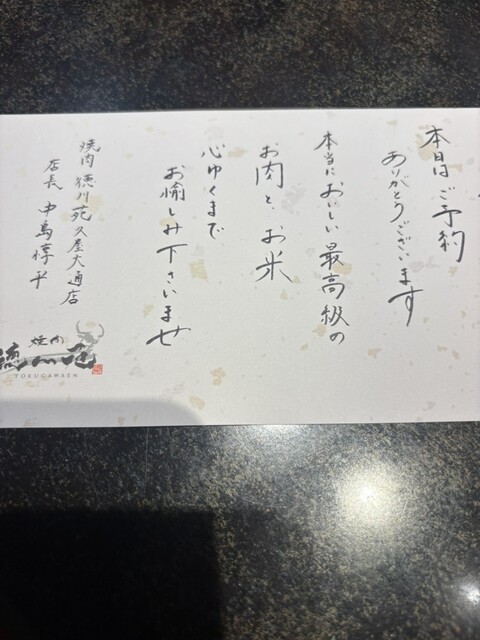 本日はご予約
ありがとうございます
本当においしい最高級の
お肉と、お米
心ゆくまで
お愉しみ下さいませ
焼肉 徳川苑 久屋大通店
店長 中島惇平
焼肉
徳川苑
TOKUGAWAEN